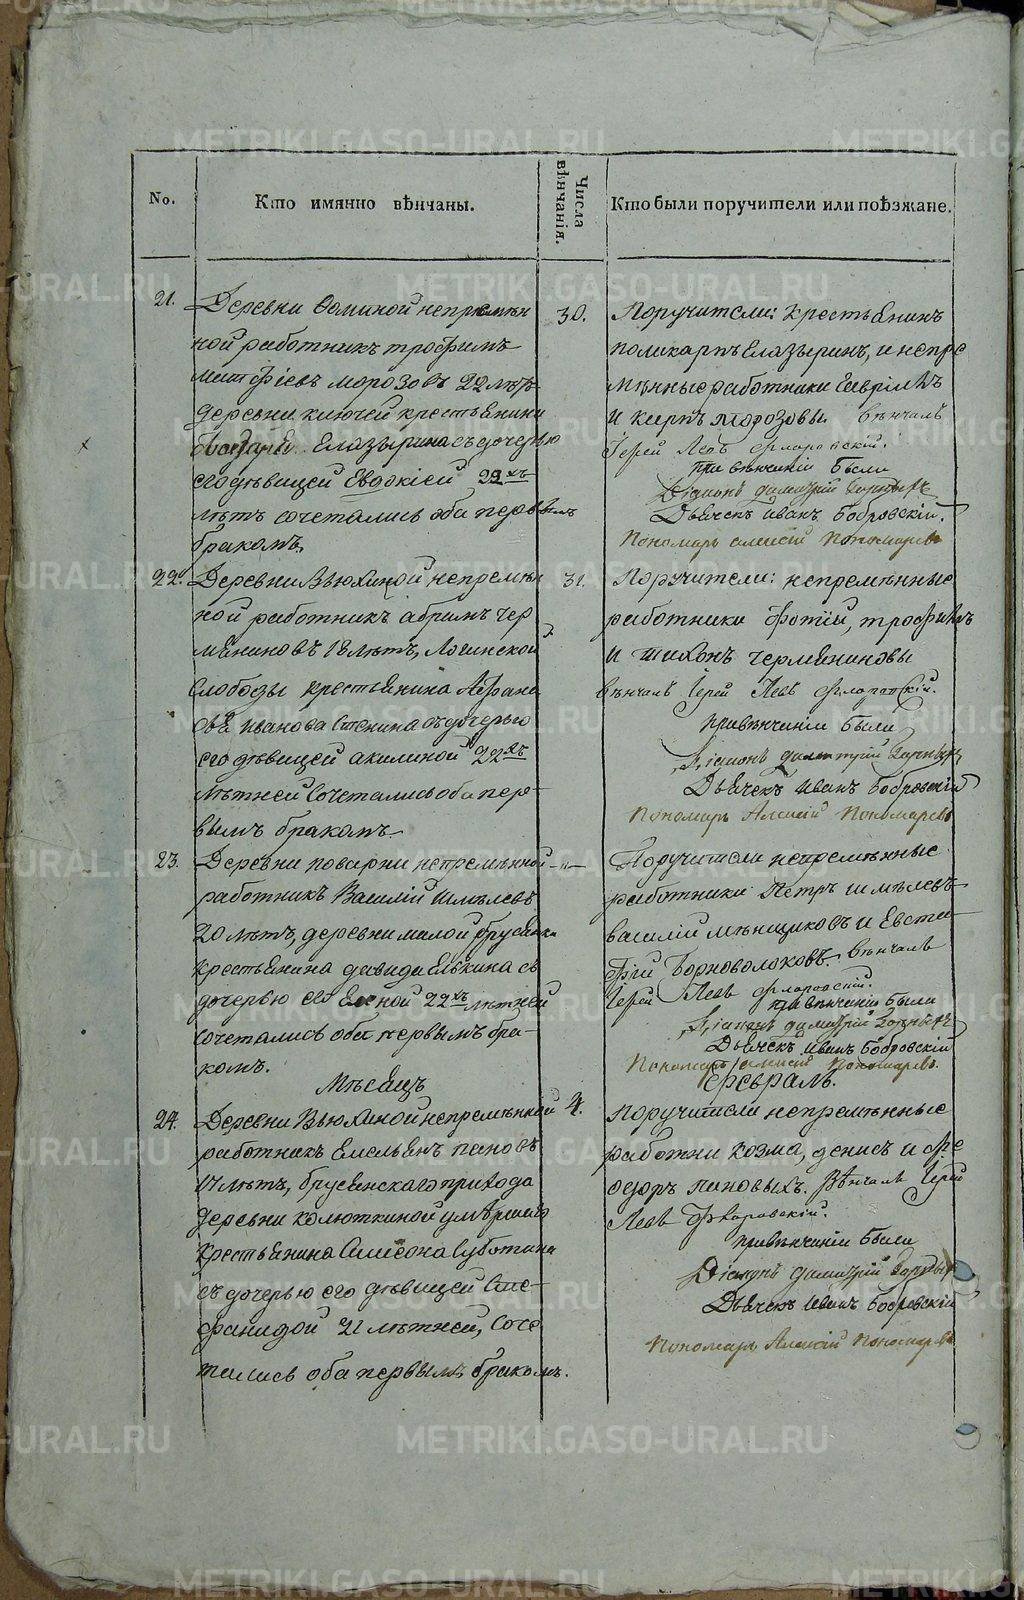 No.
Кто имянно вѣнчаны.
Числа вѣнчанія.
Кто были поручители или поѣзжане.
21.
Деревни непремѣн
ной работникъ трофимъ
морозовъ 22 лѣтъ
деревни ключей крестьянина
Елазырина съ дочерью
его дѣвицей Евдокіей 22хъ
лѣтъ сочетались оба первымъ
бракомъ
30.
Поручители: крестьянинъ
поликарпъ Елазыринъ, и непре
мѣнные работники Гавріилъ
и карпъ морозовы. Вѣнчалъ
Іерей Левъ Флоровскій.
при вѣнчаніи были
Діаконъ димитрій
Дьячекъ Иванъ Бобровскій.
Пономарь алексій Пономаревъ
22.
Деревни Вьюхиной непремѣн
ной работникъ абрамъ чер
мяниновъ 18 лѣтъ,
Слободы крестьянина Афана
сья Иванова съ дочерью
его дѣвицей акилиной 22хъ
лѣтней сочетались оба пер-
вымъ бракомъ
31.
Поручители: непремѣнные
работники Фотій, трофимъ
и тихонъ чермяниновы
вѣнчалъ Іерей Левъ Флоровскій.
при вѣнчаніи были
Діаконъ димитрій
Дьячекъ Иванъ Бобровскій
Пономарь Алексій Пономаревъ
23.
Деревни поварни непремѣнной
работникъ Василій Шмѣлевъ
20 лѣтъ, деревни малой брусянки
крестьянина давида Елькина съ
дочерью его Еленой 22хъ лѣтней
сочетались оба первымъ бра-
комъ.
-"-
Поручители непремѣнные
работники Петръ шмѣлевъ
василій мѣнщиковъ и Евста-
фій Борноволоковъ. вѣнчалъ
Іерей Левъ Флоровскій.
при вѣнчаніи были
Діаконъ димитрій
Дьячекъ Иванъ Бобровскій
Пономарь алексій Пономаревъ.
Мѣсяцъ
февраль.
24.
Деревни Вьюхиной непремѣнной
работникъ Емельянъ пановъ
17 лѣтъ, брусянскаго прихода
деревни колюткиной умершаго
крестьянина Симеона Суботина
съ дочерью его дѣвицей Сте-
фанидой 21 лѣтней, Соче
тались оба первымъ бракомъ.
4.
Поручители непремѣнные
работни козма, денисъ и фе
одоръ пановыхъ. Вѣнчалъ Іерей
Левъ Флоровскій.
при вѣнчаніи были
Діаконъ димитрій
Дьячекъ Иванъ Бобровскій
Пономарь Алексій Пономаревъ
METRIKI.GASO-URAL.RU